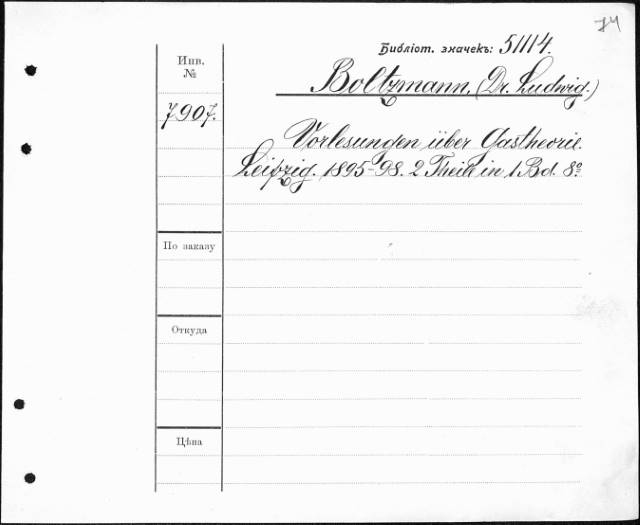 74
Библіот. значекъ: 51114.
Инв.
№
Boltzmann, (Dr. Ludwig.)
7907.
Vorlesungen über Gastheorie.
Leipzig. 1895-98. 2 Theile in 1 Bd. 8º
По заказу
Откуда
Цѣна